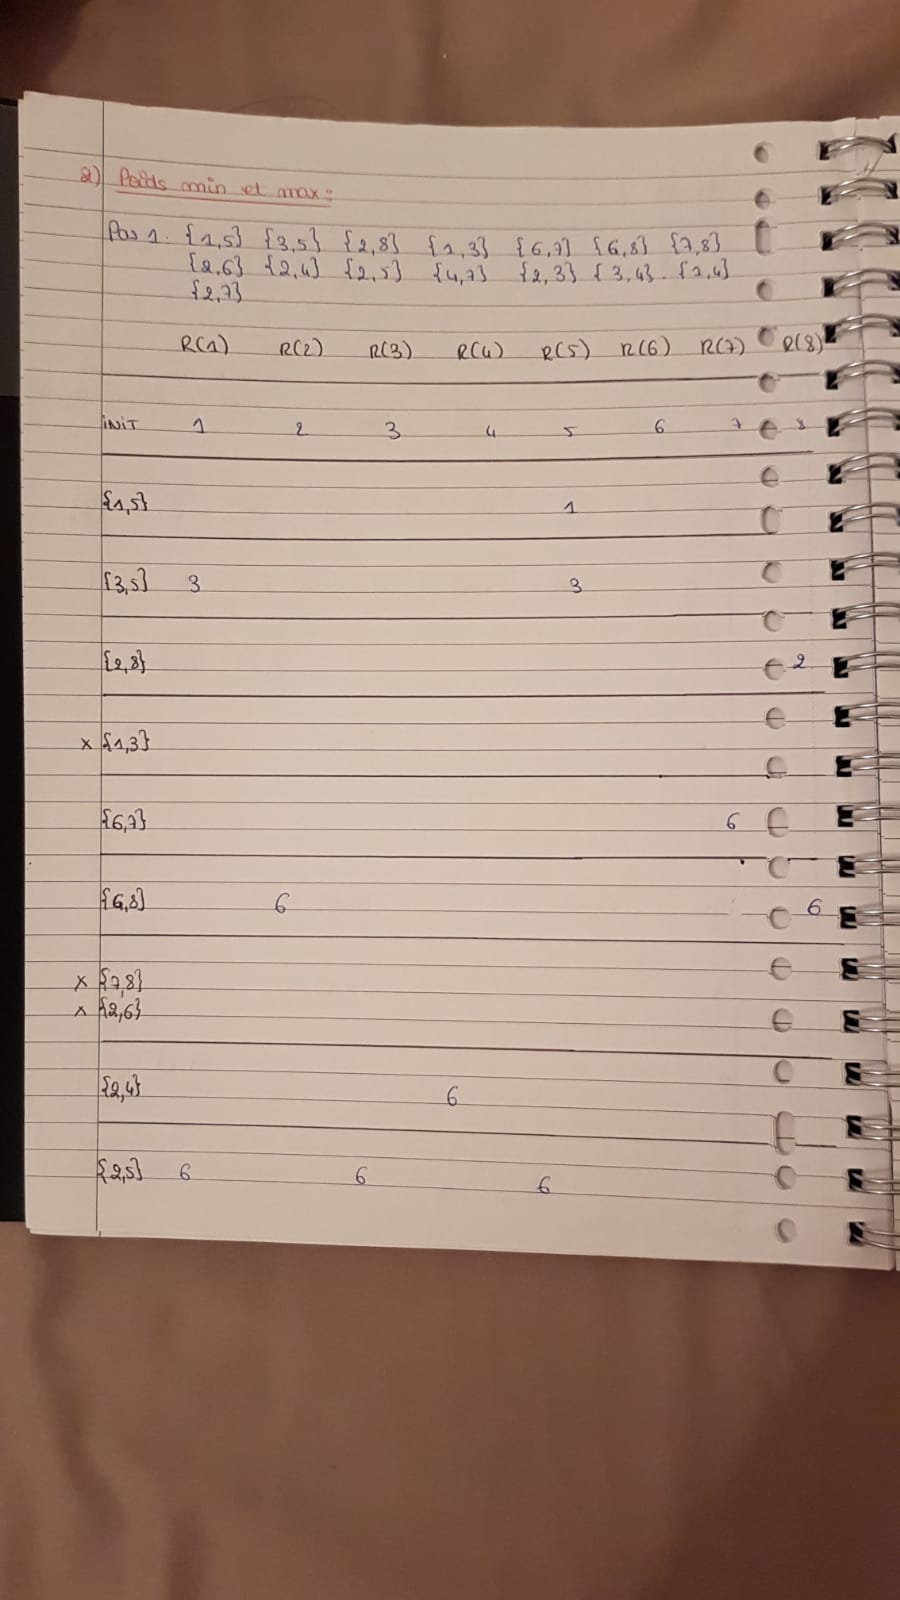 2) Poids min et max :
Pas 1. {1,5} {3,5} {2,8} {1,3} {6,7} {6,8} {7,8}
{2,6} {2,4} {2,5} {4,7} {2,3} {3,4}. {1,4}
{2,7}
R(1) R(2) R(3) R(4) R(5) R(6) R(7) R(8)
INIT 1 2 3 4 5 6 7 8
{1,5} 1
{3,5} 3 3
{2,8} 2
x {1,3}
{6,7} 6
{6,8} 6 6
x {7,8}
x {2,6}
{2,4} 6
{2,5} 6 6 6